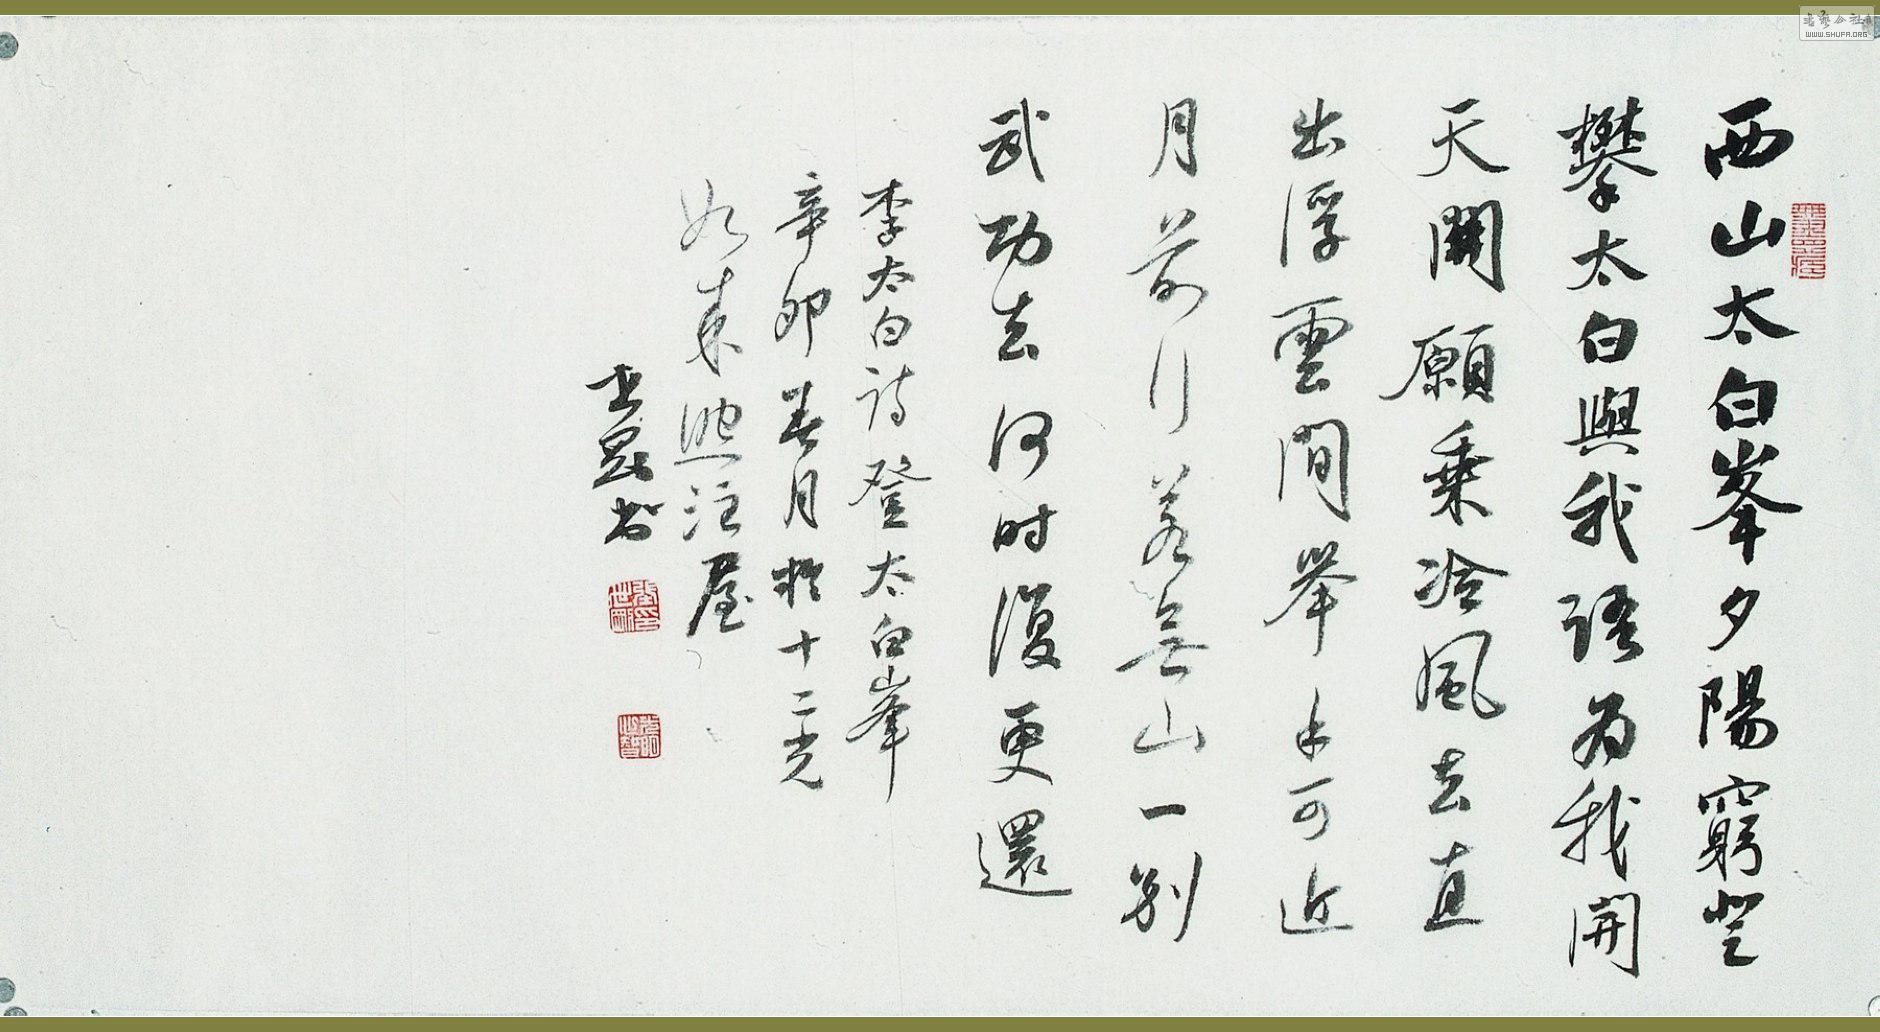 西山太白峯夕陽窮登
攀太白與我語為我開
天關願乘冷風去直
出浮雲間舉手可近
月前行若無山一別
武功去何时復更還
李太白詩登太白峯
辛卯春月於十二光
如來照注屋
书
WWW.SHUFA.ORG